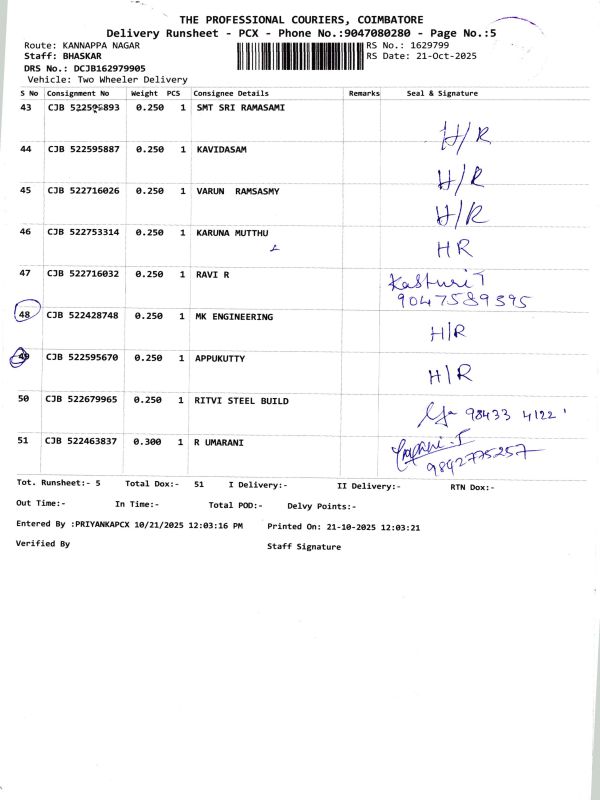 THE PROFESSIONAL COURIERS, COIMBATORE
Delivery Runsheet - PCX - Phone No.:9047080280 - Page No.:5
Route: KANNAPPA NAGAR RS No.: 1629799
Staff: BHASKAR RS Date: 21-Oct-2025
DRS No.: DCJB162979905
Vehicle: Two Wheeler Delivery
S No Consignment No Weight PCS Consignee Details Remarks Seal & Signature
43 CJB 522595893 0.250 1 SMT SRI RAMASAMI H/R
44 CJB 522595887 0.250 1 KAVIDASAM H/R
45 CJB 522716026 0.250 1 VARUN RAMSASMY H/R
46 CJB 522753314 0.250 1 KARUNA MUTTHU HR
47 CJB 522716032 0.250 1 RAVI R Kasturi T
9047589395
48 CJB 522428748 0.250 1 MK ENGINEERING H/R
49 CJB 522595670 0.250 1 APPUKUTTY H/R
50 CJB 522679965 0.250 1 RITVI STEEL BUILD 98433 4122
51 CJB 522463837 0.300 1 R UMARANI
9842775257
Tot. Runsheet:- 5 Total Dox:- 51 I Delivery:- II Delivery:- RTN Dox:-
Out Time:- In Time:- Total POD:- Delvy Points:-
Entered By :PRIYANKAPCX 10/21/2025 12:03:16 PM Printed On: 21-10-2025 12:03:21
Verified By Staff Signature